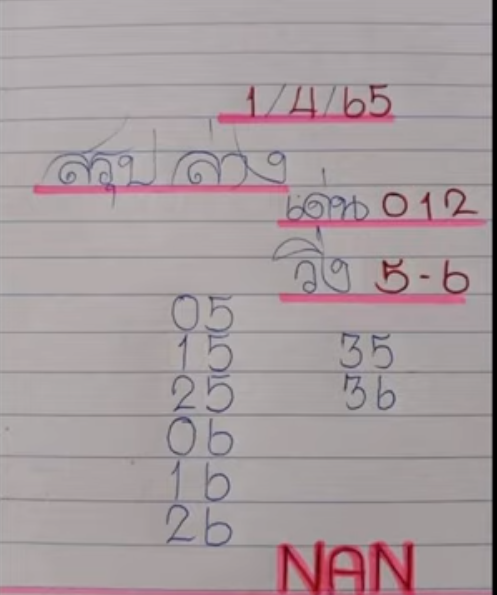 1/4/65
สรุป ล่าง
เด่น 012
วิ่ง 5-6
05
15 35
25 36
06
16
26
NAN